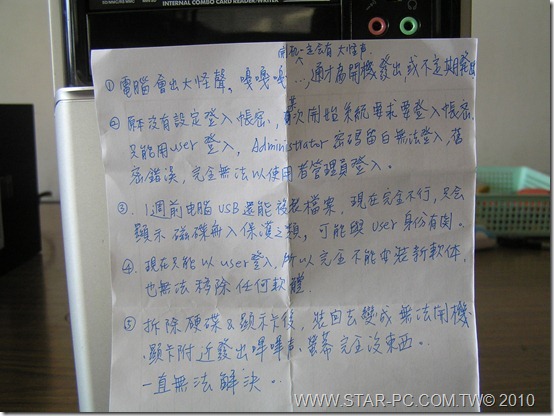 INTERNAL COMBO CARD READER/WRITER
開機一定會有大怪聲
① 電腦會出大怪聲, 嘎嘎嘎...,通常開機發出或不定期發出
② 原本沒有設定登入帳密,某次開始系統要求要登入帳密
只能用user 登入, Administrator 密碼留白無法登入,舊
密錯誤,完全無法以使用者管理員登入。
③. 1週前电腦 USB 還能複製檔案,現在完全不行,只會
顯示 磁碟無入保護之類,可能與 user 身份有関。
④. 現在只能 以 user登入,所以完全不能安裝新軟体,
也無法移除任何軟體.
⑤ 拆除硬碟&顯示卡後,裝回去變成無法開機
顯卡附近發出嗶嗶声,螢幕完全沒東西。
一直無法解決。
WWW.STAR-PC.COM.TW© 2010